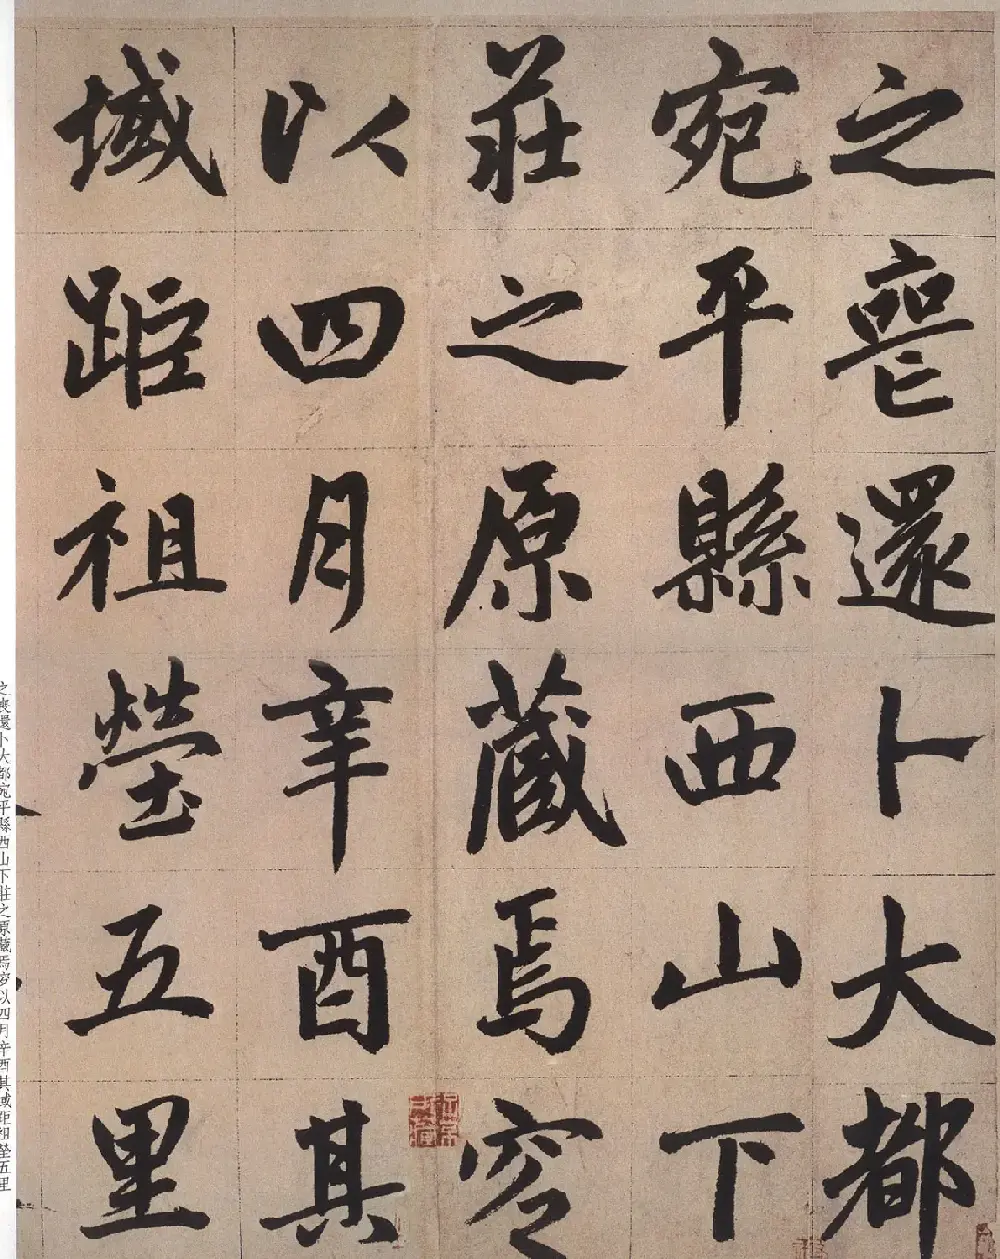 之喪還卜大都
宛平縣西山下
莊之原藏焉窆
以四月辛酉其
域距祖塋五里
之喪還卜大都宛平縣西山下莊之原藏焉窆以四月辛酉其域距祖塋五里